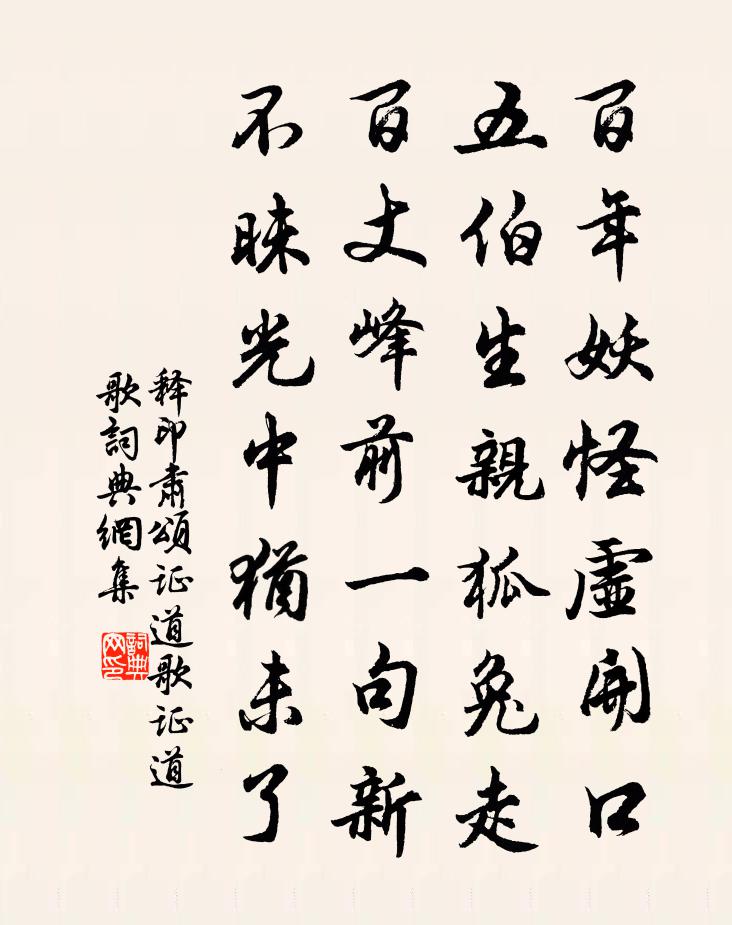 百年妖怪虛開口
五伯生親狐兔走
百丈峰前一句新
不昧光中猶未了
释印肅頌証道歌証道
歌詞典網集
詞典
网印